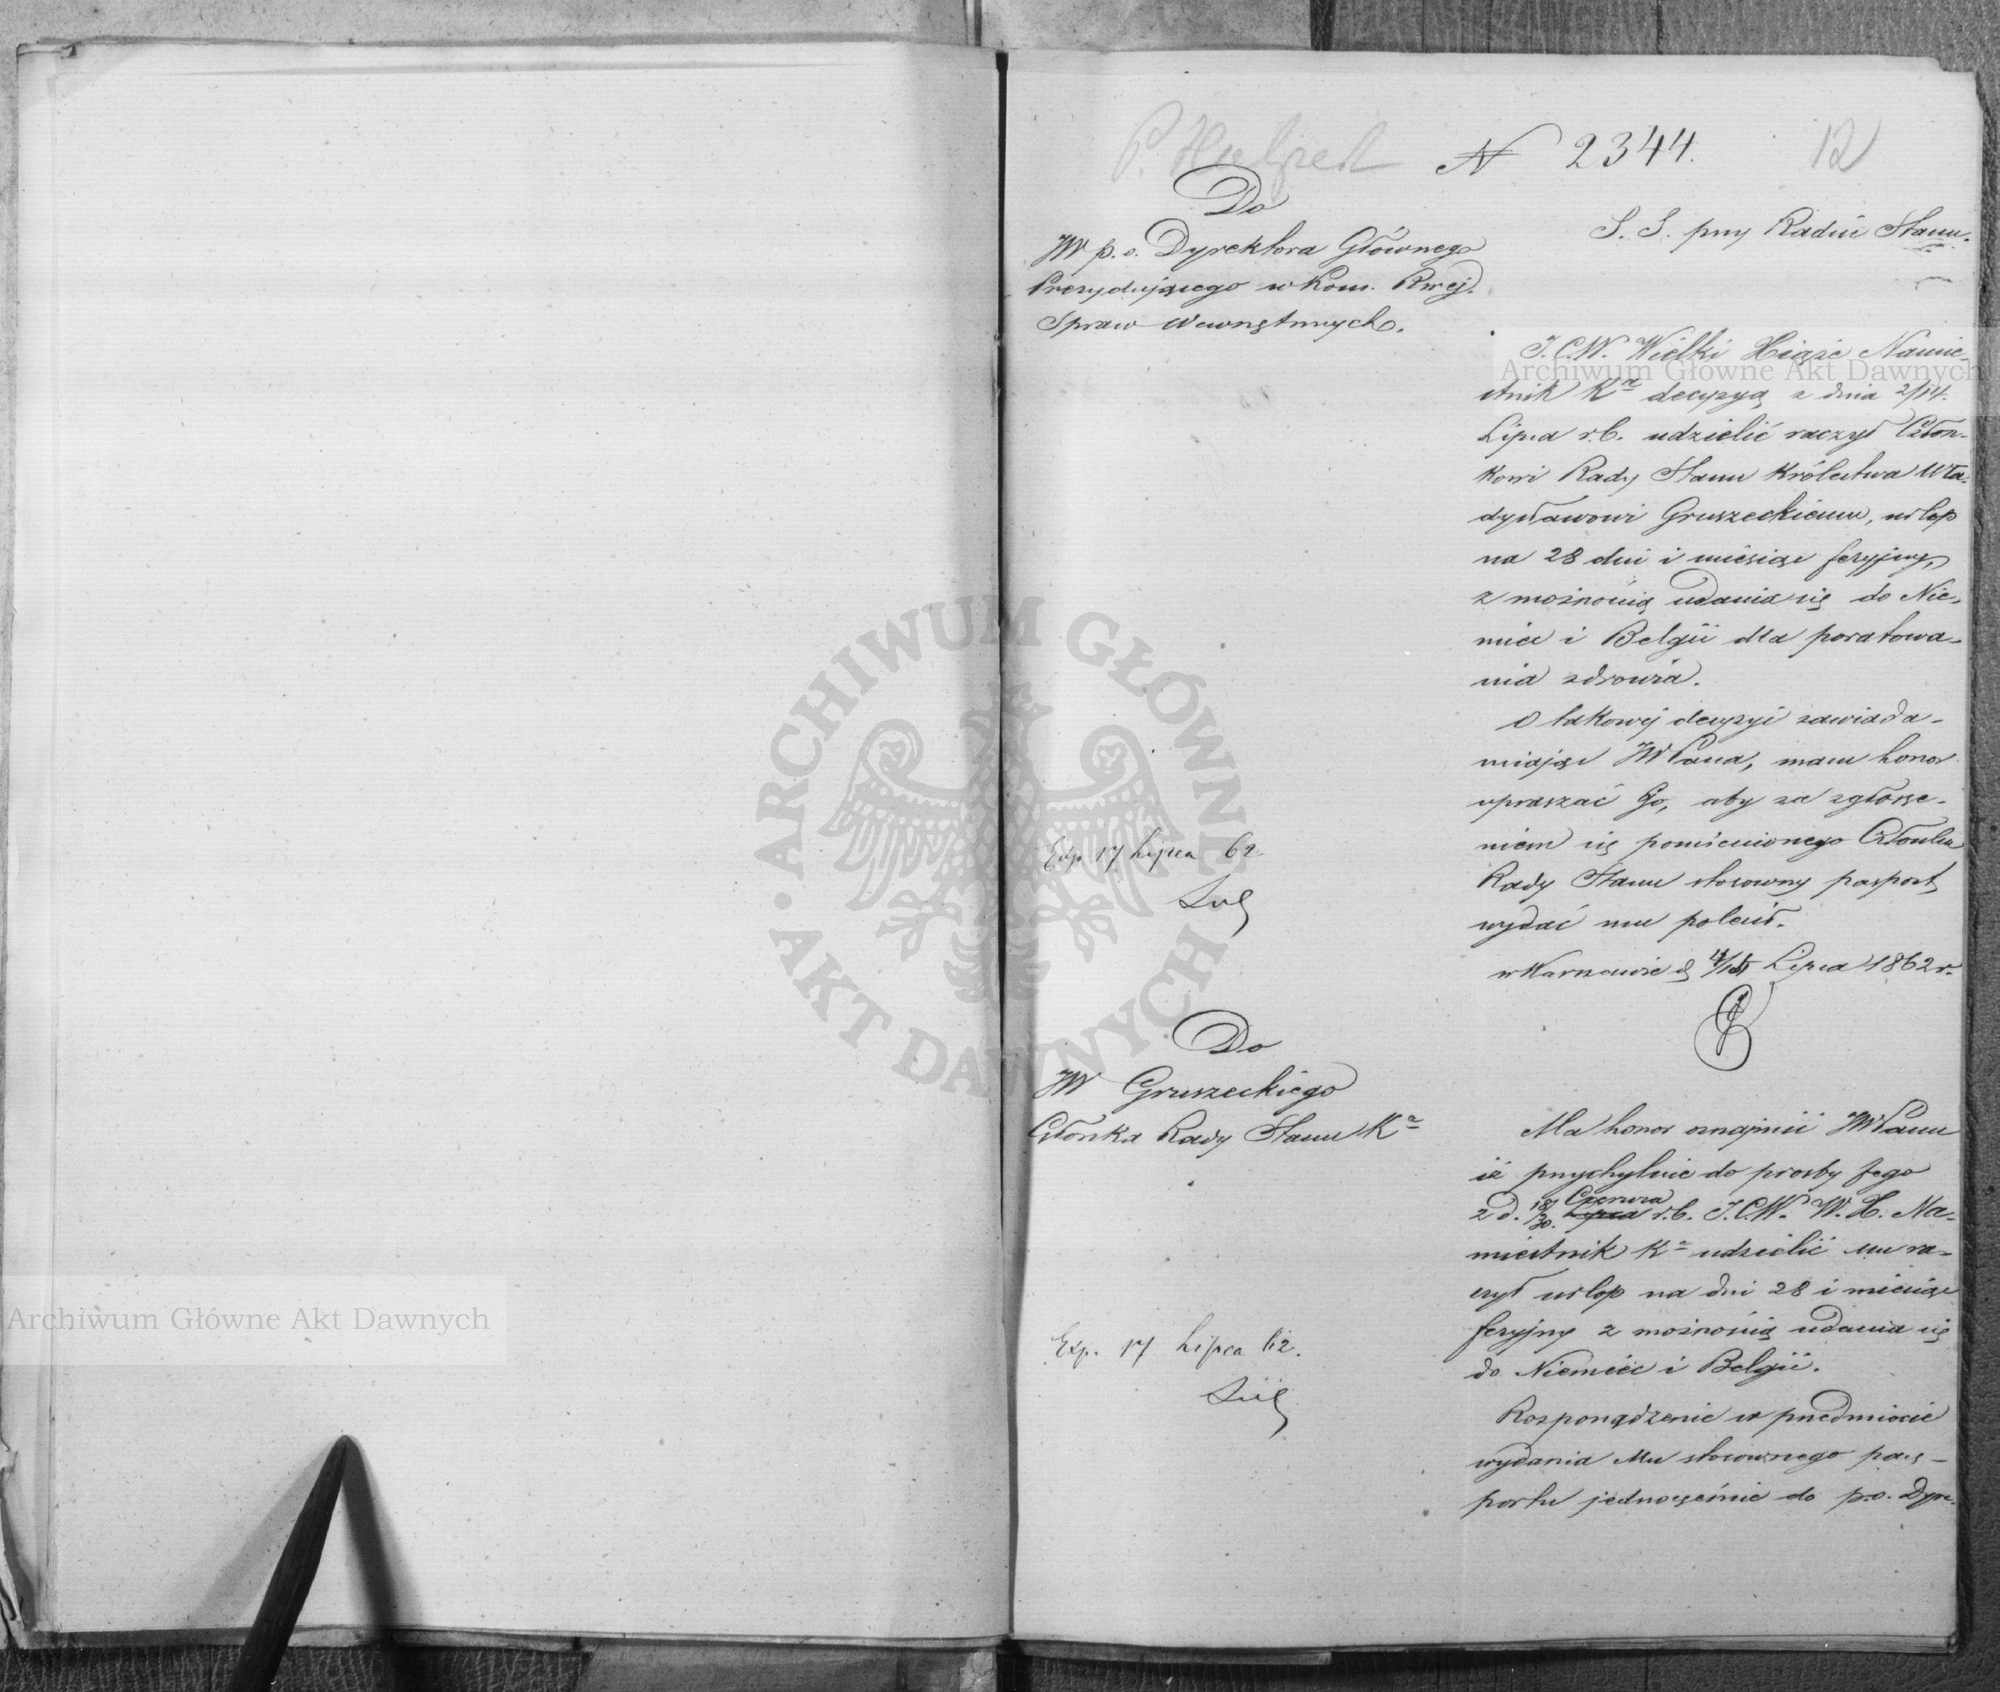 P. Halpert
N 2344.
12
Do
JW p. o. Dyrektora Głównego
Prezydującego w Kom. Rząj.
Spraw Wewnętrznych.
S. S. przy Radzie Stanu.
J. C. W. Wielki Xiąże Namie-
stnik Kа decyzyą z dnia 2/14.
Lipca r. b. udzielić raczył Człon-
kowi Rady Stanu Królestwa Wła-
dysławowi Gruszeckiemu, urlop
na 28 dni i miesiąc feryjny,
z możnością udania się do Nie-
miec i Belgii dla poratowa-
nia zdrowia.
O takowej decyzyi zawiada-
miając JWPana, mam honor
upraszać Go, aby za zgłosze-
niem się pomienionego Członka
Rady Stanu stosowny pasport
wydać mu polecił.
w Warszawie d Lipca 1862 r.
Exp. 17 Lipca 62
Do
JW Gruszeckiego
Członka Rady Stanu Kа
Ma honor oznajmić JWPanu
iż przychylnie do prośby Jego
z d. 18/30. Lipca Czerwca r. b. J. C. W. W. X. Na-
miestnik Kа udzielić mu ra-
czył urlop na dni 28 i miesiąc
feryjny z możnością udania się
do Niemiec i Belgii.
Exp. 17 Lipca 62.
Rozporządzenie w przedmiocie
wydania Mu stosownego pas-
portu jednocześnie do p. o. Dyre-
Archiwum Główne Akt Dawnych
Archiwum Główne Akt Dawnych
ARCHIWUM GŁÓWNE
AKT DAWNYCH